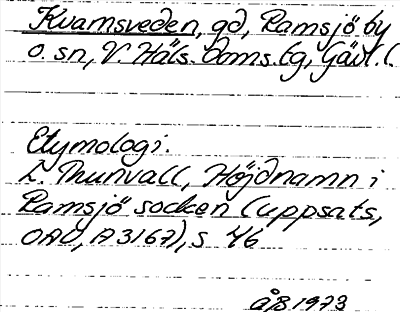 Kvamsveden, gd, Ramsjö by
o. sn, V. Häls. doms. tg, Gävl. l.
Etymologi.
L. Thunvall, Höjdnamn i
Ramsjö socken (uppsats,
OAU, A 3167), s 46
åB 1973